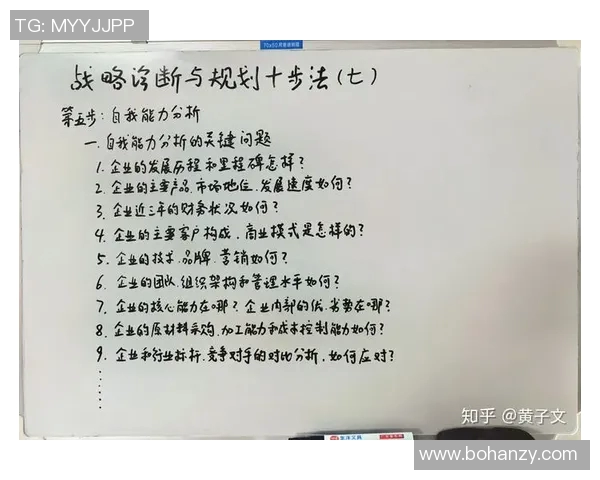 TG: MYYJJPP
战略诊断与规划十步法(七)
第五步:自我能力分析
一.自我能力分析的关键问题
1.企业的发展历程和里程碑怎样?
2.企业的主要产品.市场地位.发展速度如何?
3.企业近三年的财务状况如何?
4.企业的主要客户构成.商业模式是怎样的?
5.企业的技术.品牌.营销如何?
6.企业的团队.组织架构和管理水平如何?
7.企业的核心能力在哪?企业内部的优.劣势在哪?
8.企业的原材料采购.加工能力和成本控制能力如何?
9.企业和行业标杆.竞争对手的对比分析.如何应对?
......
知乎 @黄子文
www.bohanzy.com